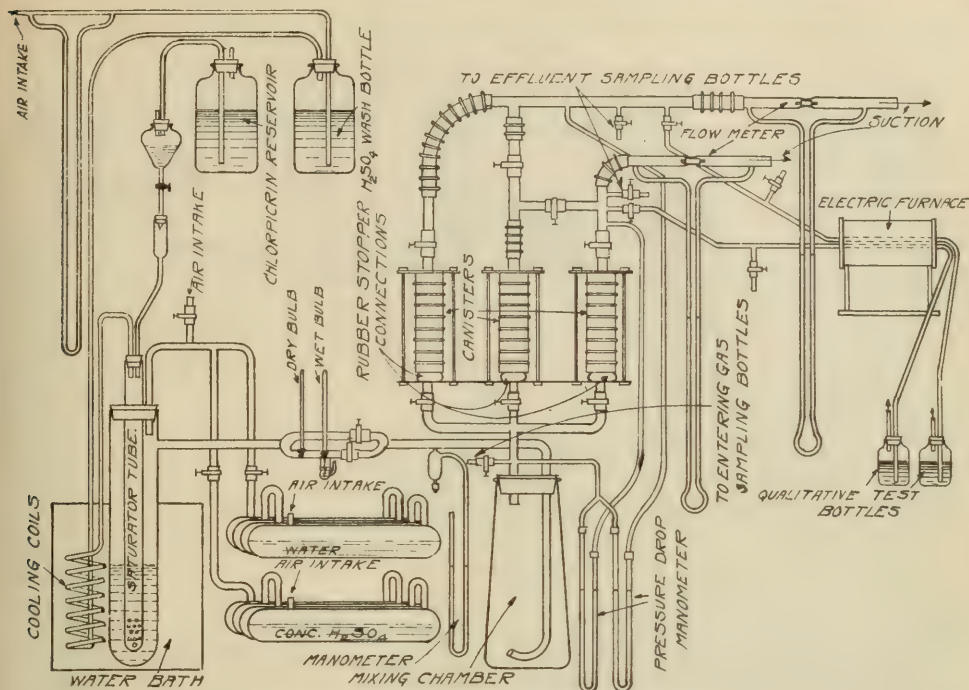 AIR INTAKE
CHLORPICRIN RESERVOIR
H₂SO₄ WASH BOTTLE
TO EFFLUENT SAMPLING BOTTLES
FLOW METER
SUCTION
ELECTRIC FURNACE
AIR INTAKE
RUBBER STOPPER
CONNECTIONS
CANISTERS
DRY BULB
WET BULB
TO ENTERING GAS
SAMPLING BOTTLES
QUALITATIVE TEST
BOTTLES
SATURATOR TUBE
COOLING COILS
AIR INTAKE
WATER
AIR INTAKE
CONC. H₂SO₄
WATER BATH
MANOMETER
MIXING CHAMBER
PRESSURE DROP
MANOMETER